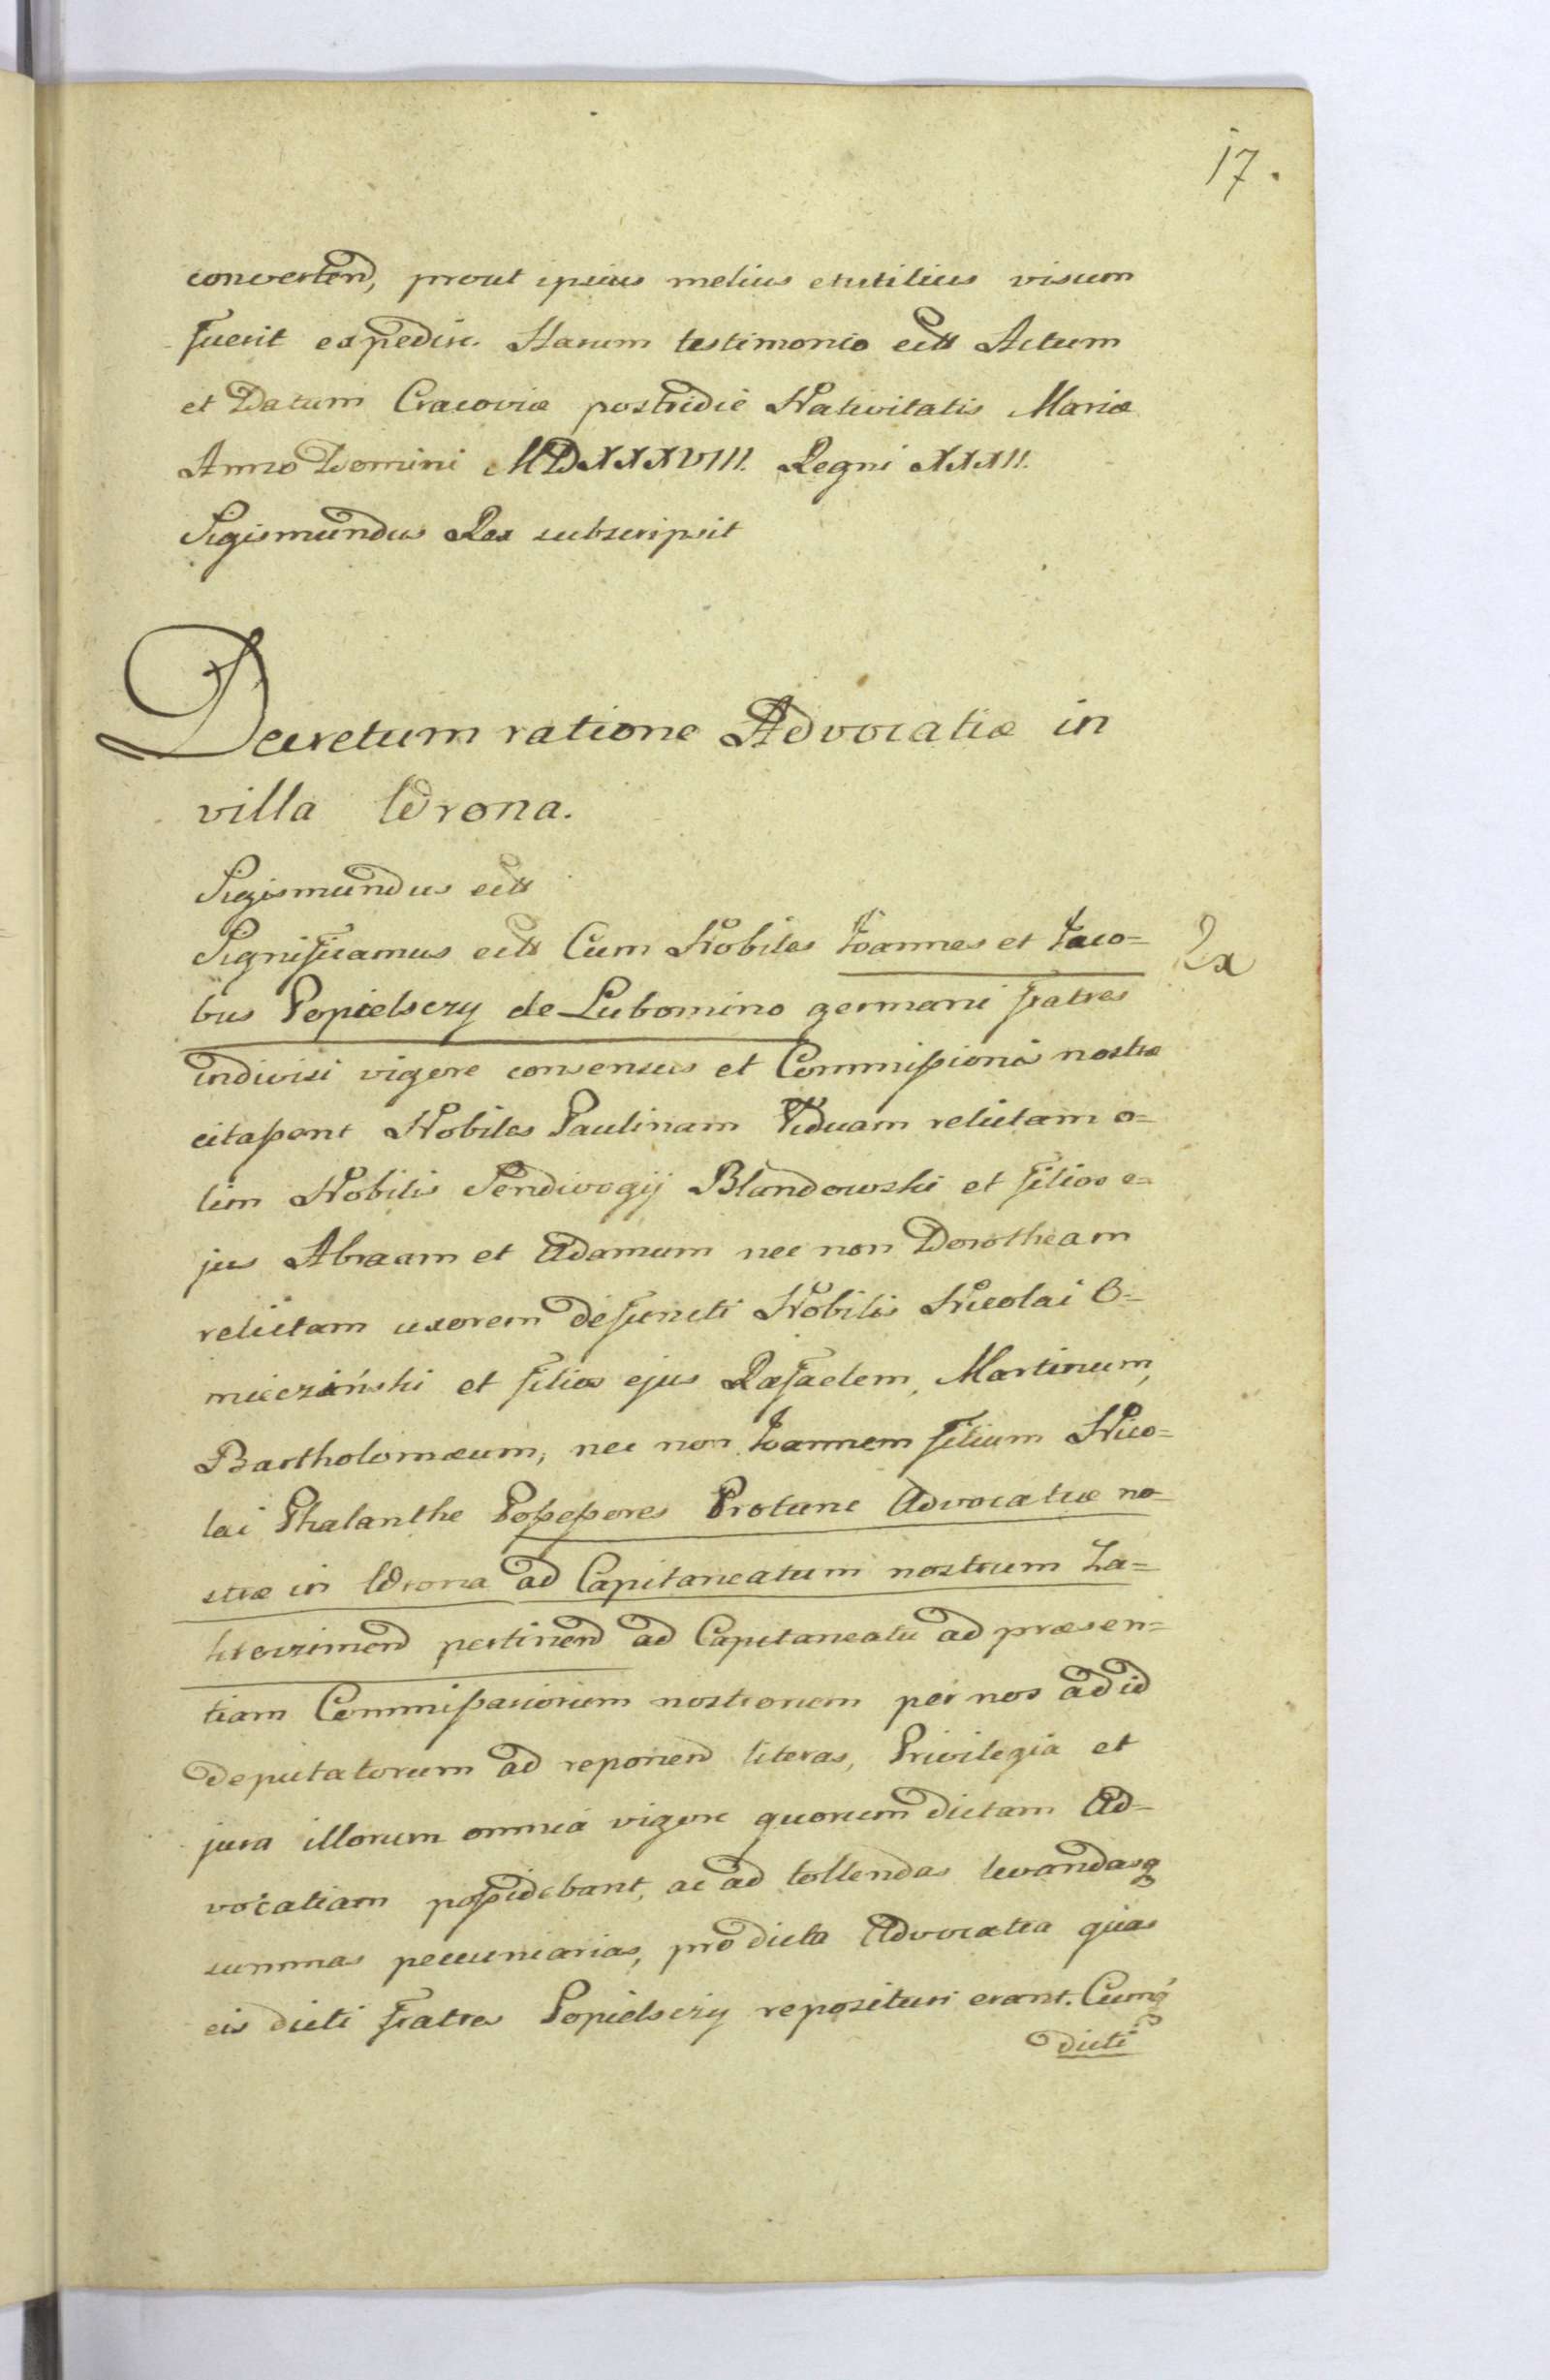 17.
convertend, prout ipsius melius et utilius visum
fuerit expedire. Harum testimonio ectt Actum
et Datum Cracoviæ postridie Nativitatis Mariæ
Anno Domini MDXXXVIII. Regni XXXII.
Sigismundus Rex subscripsit
Decretum ratione Advocatiæ in
villa Wrona.
Sigismundus ectt
Significamus ectt Cum Nobiles Joannes et Jaco=
bus Popielsczy de Lubomino germani fratres
indivisi vigore consensus et Commißionis nostræ
citaßent Nobiles Paulinam Viduam relictam o=
lim Nobilis Sendivogij Blandowski et filios e=
jus Abraam et Adamum nec non Dorotheam
relictam uxorem defuncti Nobilis Nicolai O=
miecziński et filios ejus Rafaelem, Martinum,
Bartholomæum, nec non Joannem filium Nico=
lai Phalanthe Poßeßores Protunc Advocatiæ no=
stræ in Wrona ad Capitaneatum nostrum Za=
kroczimend pertinend ad Capitaneatu ad præsen=
tiam Commißariorum nostrorum per nos ad id
deputatorum ad reponend literas, Privilegia et
jura illorum omnia vigore quorum dictam Ad=
vocatiam poßidebant, ac ad tollendas levandasq
summas pecuniarias, pro dicta Advocatia quas
eis dicti fratres Popielsczy reposituri erant. Cumq
dicti